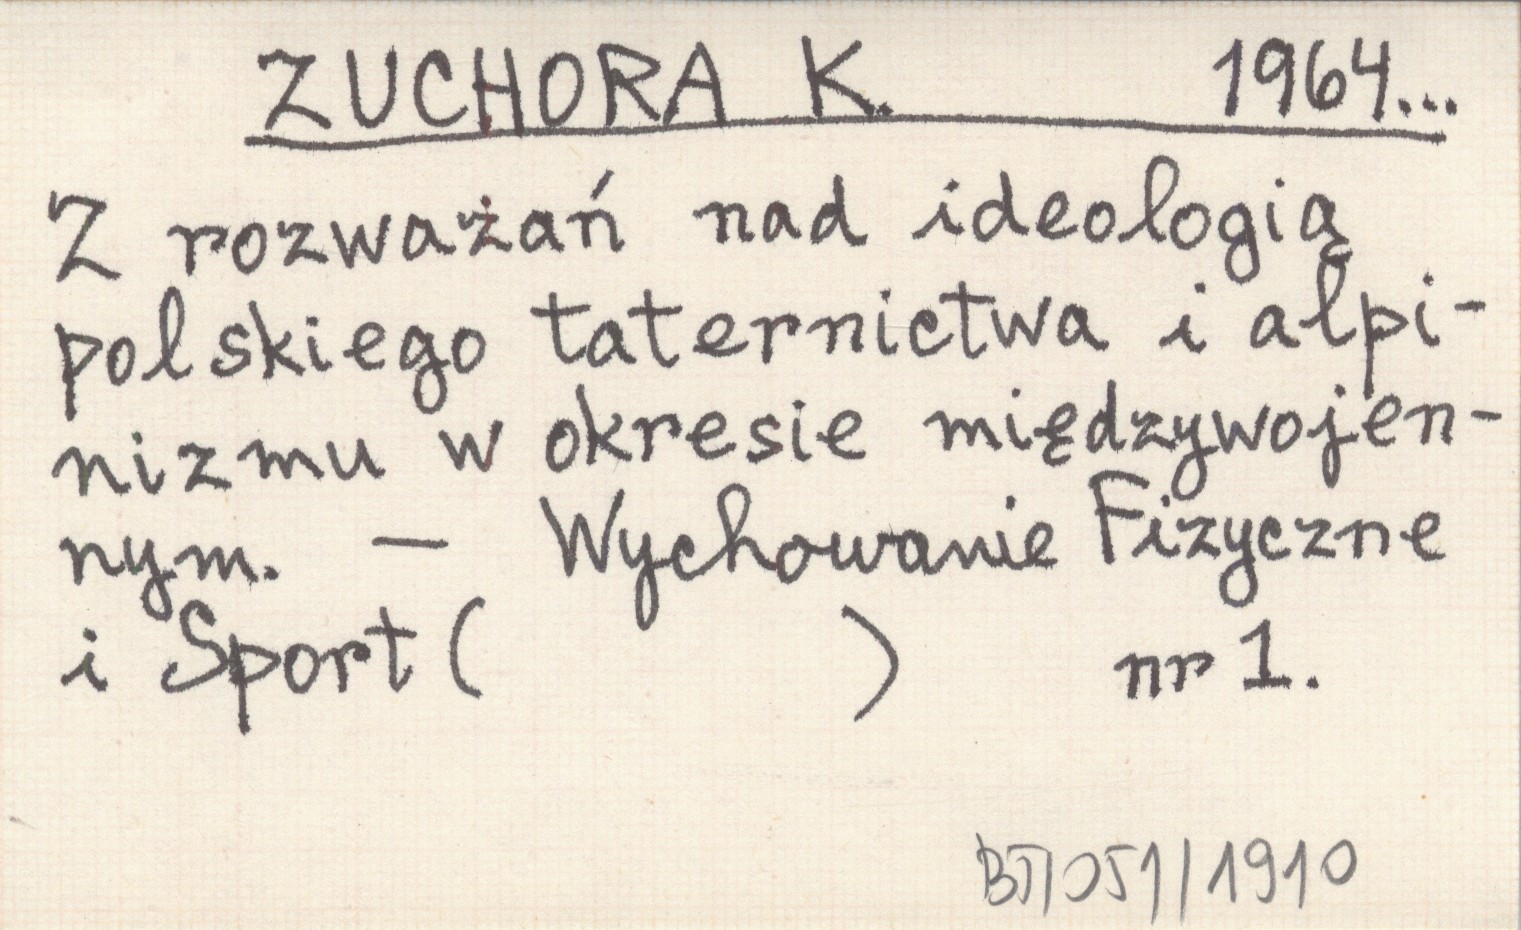 ZUCHORA K. 1964...
Z rozważań nad ideologią
polskiego taternictwa i alpi-
nizmu w okresie międzywojen-
nym. — Wychowanie Fizyczne
i Sport ( ) nr 1.
051/1910